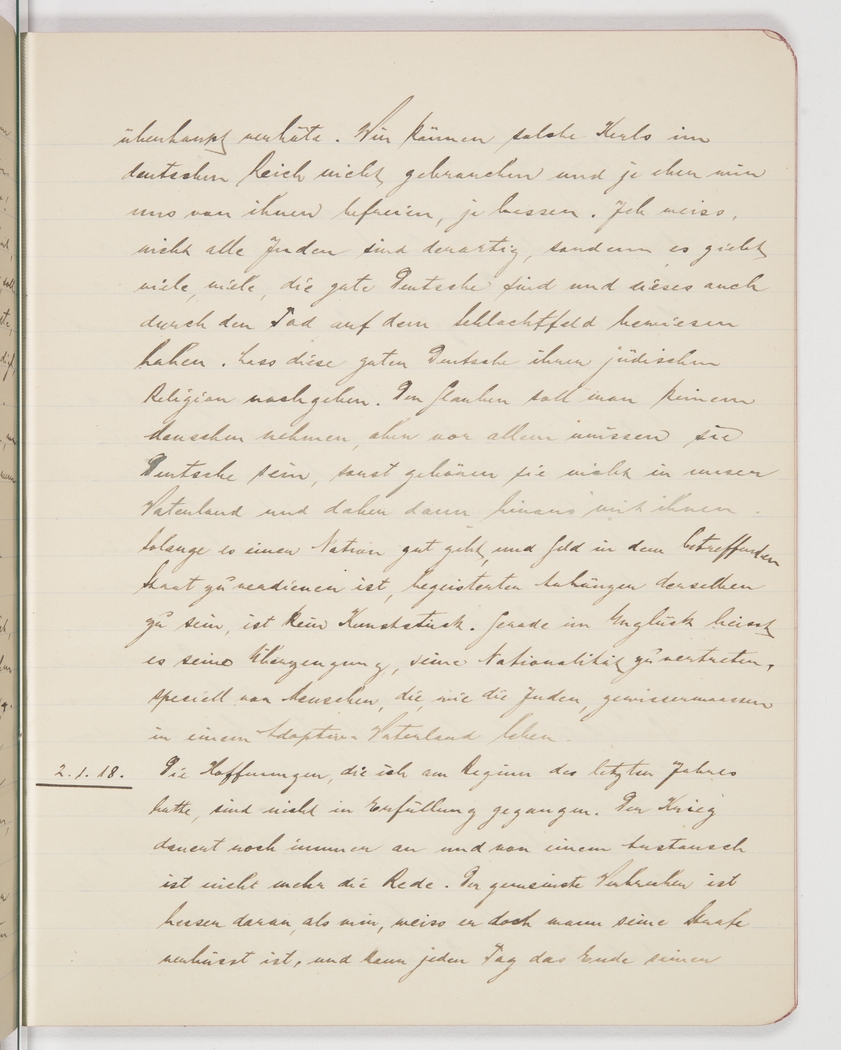 überhaupt verhüte. Wir können solche Kerls im
deutschen Reich nicht gebrauchen und je eher wir
uns von ihnen befreien, je besser. Ich weiss,
nicht alle Juden sind derartig, sondern es giebt
viele, viele, die gute Deutsche sind und dieses auch
durch den Tod auf dem Schlachtfeld bewiesen
haben. Lass diese guten Deutsche ihrer jüdischen
Religion nachgehen. Den Glauben soll man keinem
Menschen nehmen, aber vor allem müssen sie
Deutsche sein, sonst gehören sie nicht in unser
Vaterland und daher dann hinaus mit ihnen.
Solange es einer Nation gut geht, und Geld in dem betreffenden
Staat zu verdienen ist, begeisterter Anhänger derselben
zu sein, ist kein Kunststück. Gerade im Unglück heisst
es seine Überzeugung, seine Nationalität zu vertreten,
speciell von Menschen, die, wie die Juden, gewissermaassen
in einem Adoptiv Vaterland leben.
2.1.18. Die Hoffnungen, die ich am Beginn des letzten Jahres
hatte, sind nicht in Erfüllung gegangen. Der Krieg
dauert noch immer an und von einem Austausch
ist nicht mehr die Rede. Der gemeinste Verbrecher ist
besser daran, als wir, weiss er doch wann seine Strafe
verbüsst ist, und kann jeden Tag das Ende seiner